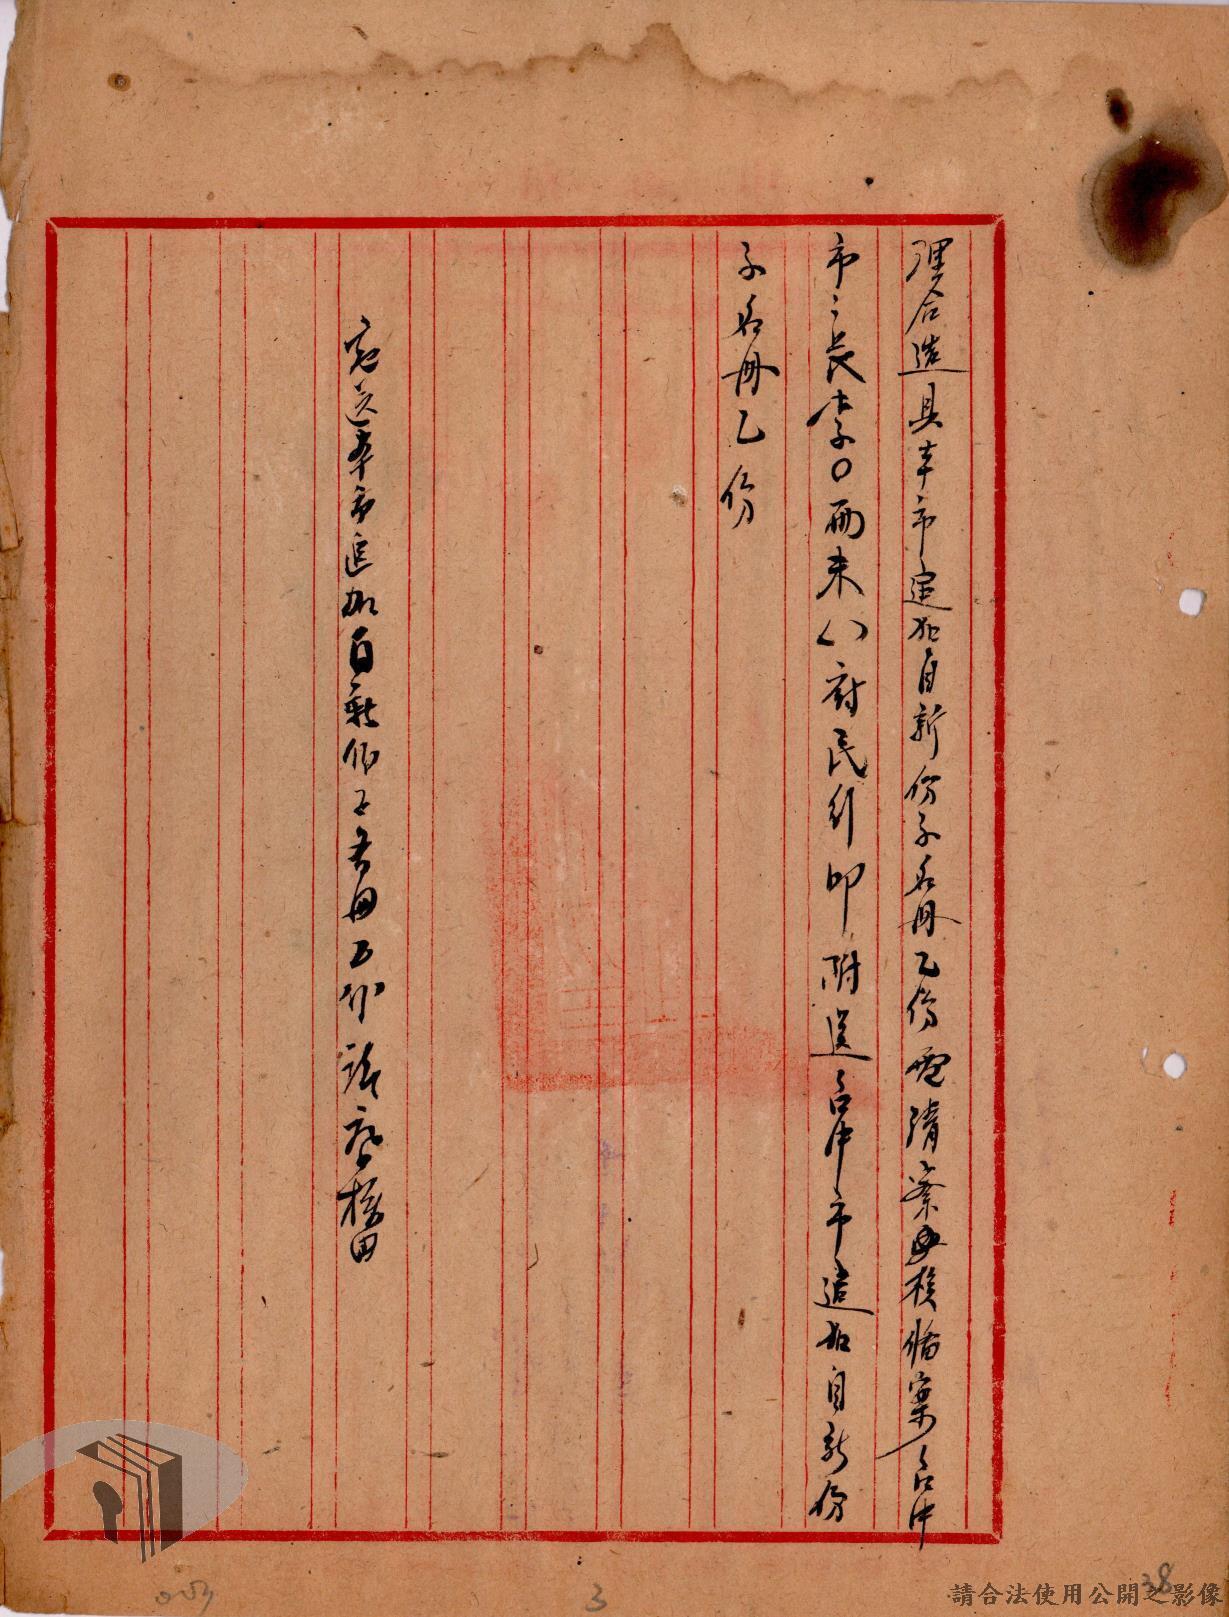 理合造具本市追加自新份子名冊乙份電請察核備案台中
市々長李〇西未八府民行印附送台中市追加自新份
子名冊乙份
送本市追加自新份子名冊乙份請察核由
053
3
38
請合法使用公開之影像